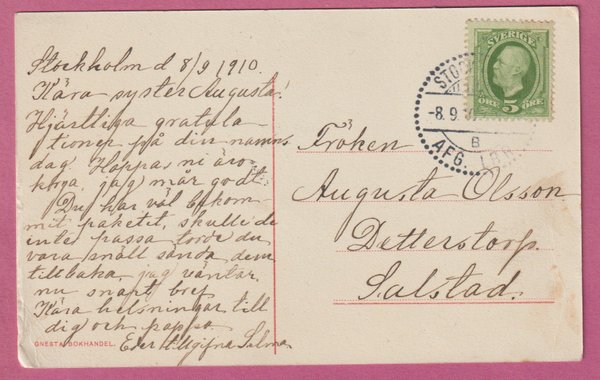 Stockholm d 8/9 1910.
Kära syster Augusta!
Hjärtliga gratula
tioner på din namns
dag. Hoppas ni äro
krya, jag mår godt.
Du har väl bekom
mit paketet, skulle de
inte passa torde du
vara snäll sända dem
tillbaka, jag väntar
nu snart bref
Kära helsningar till
dig och pappa
Eder Selma
ONESTA BOKHANDEL.
SVERIGE
ÖRE 5 ÖRE
STOC
-8.9.
B
AFG.
Fröken
Augusta Olsson
Detterstorp.
Salstad.